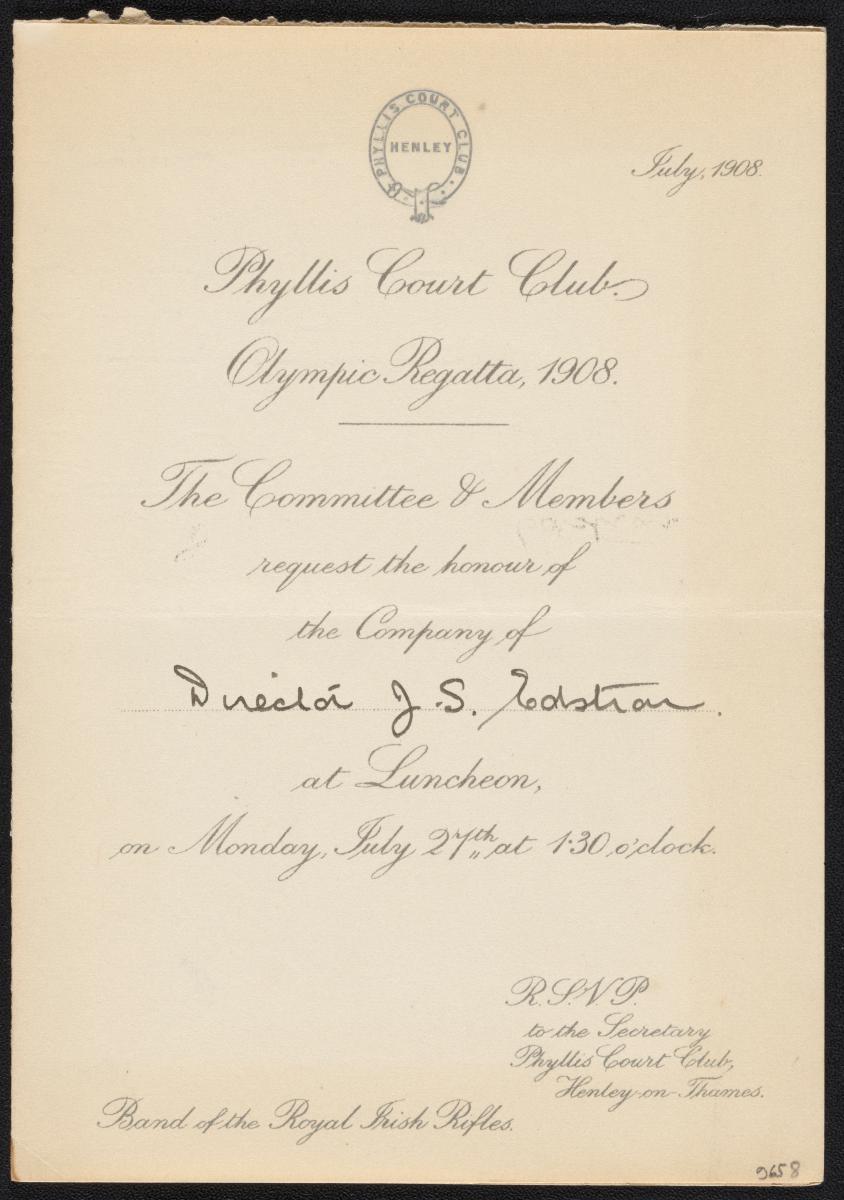 PHYLLIS COURT CLUB.
HENLEY
July, 1908.
Phyllis Court Club.
Olympic Regatta, 1908.
The Committee & Members
request the honour of
the Company of
Director J. S. Edstrom.
at Luncheon,
on Monday, July 27th at 1·30 o'clock.
R.S.V.P.
to the Secretary
Phyllis Court Club,
Henley-on-Thames.
Band of the Royal Irish Rifles.
9658